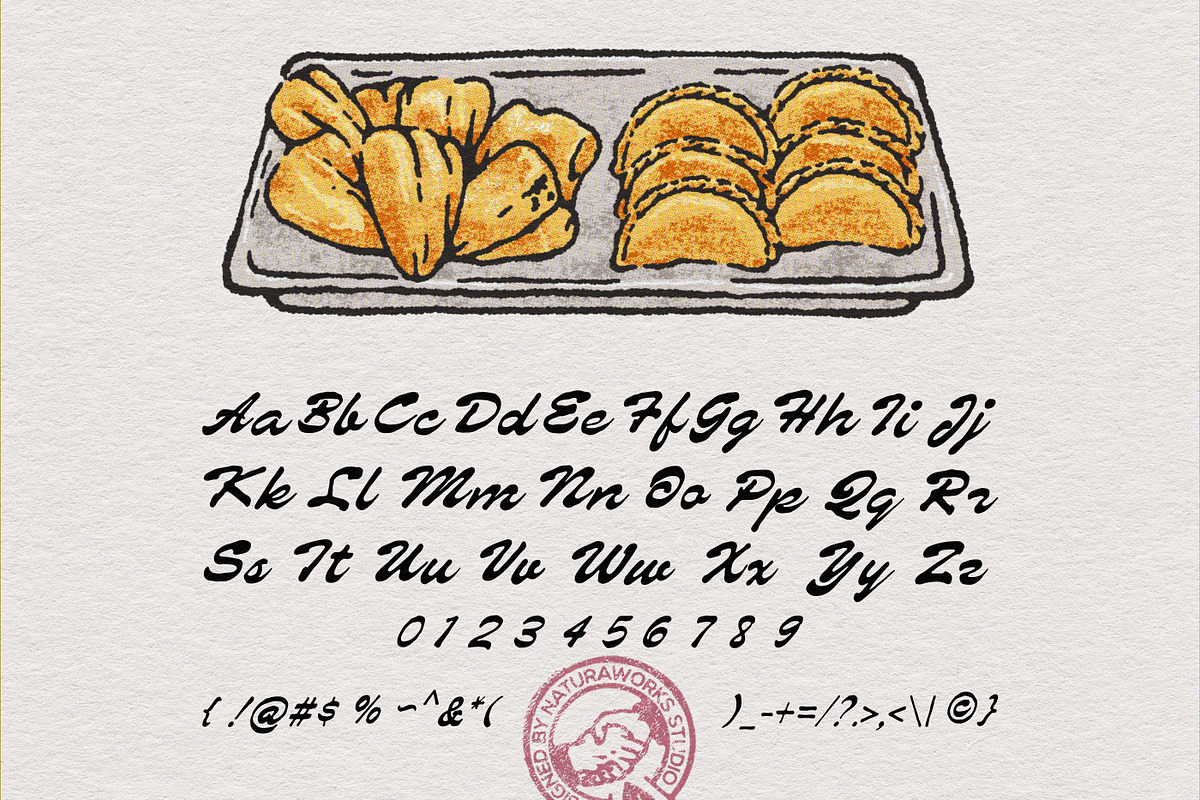 Aa Bb Cc Dd Ee Ff Gg Hh Ii Jj
Kk Ll Mm Nn Oo Pp Qq Rr
Ss Tt Uu Vv Ww Xx Yy Zz
0 1 2 3 4 5 6 7 8 9
{ !@#$ % ~^&*( )_-+=/?.>,<\| ©}
SIGNED BY NATURAWORKS STUDIO